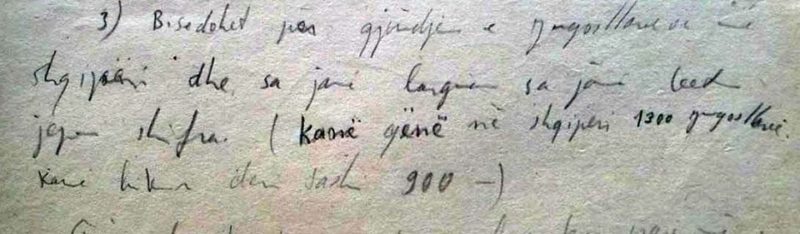 3) Bisedohet për gjendjen e jugosllavëve në
shqipëri dhe sa janë larguar sa janë
japin shifra. (kanë qënë në shqipëri 1300 jugosllavë.
Kanë ikur deri tashi 900 —)